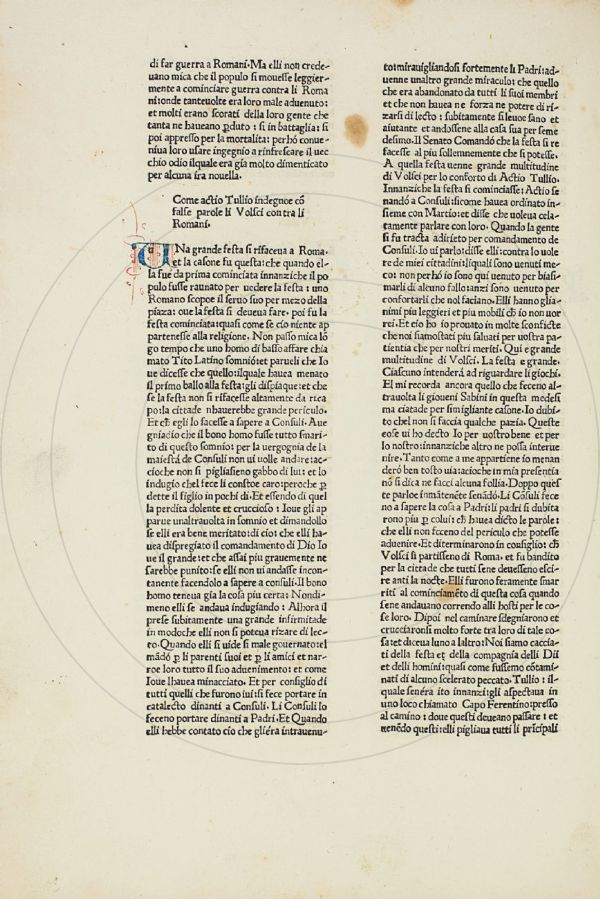 di far guerra a Romani. Ma elli non crede-
uano mica che il populo si mouesse leggier-
mente a cominciare guerra contra li Roma
ni: onde tanteuolte era loro male aduenuto: et
et molti erano scorati della loro gente che
tanta ne haueano ꝑduto : si in battaglia: si
poi appresso per la mortalita: perhó conue-
niua loro usare ingegnio a rinfrescare il uec
chio odio ilquale era gia molto dimenticato
per alcuna ira nouella.
Come actio Tullio indegnoe cō
false parole li Volsci contra li
Romani.
UNa grande festa si rifaceua a Roma.
et la casone fu questa: che quando el-
la fue da prima cominciata innanziche il po
pulo fusse raunato per uedere la festa : uno
Romano scopoe il seruo suo per mezo della
piaza: oue la festa si deueua fare. poi fu la
festa cominciata: quasi come se cio niente ap
partenesse alla religione. Non passo mica lō
go tempo che uno homo di basso affare chia
mato Tito Latino somnioe: et paruli che Io
ue dicesse che quello: ilquale hauea menato
il primo ballo alla festa: gli dispiaque: et che
se la festa non si rifacesse altamente da rica
po: la cittade nhauerebbe grande periculo.
Et cħ egli lo facesse a sapere a Consuli. Aue
gniacio che il bono homo fusse tutto smari-
to di questo somnio: per la uergognia de la
maiestá de Consuli non ui uolle andare: ac-
cioche non si pigliasieno gabbo di lui: et lo
indugio chel fece li constoe caro: peroche ꝑ
dette il figlio in pochi dí. Et essendo di quel
la perdita dolente et cruccioso : Ioue gli ap
parue unaltrauolta in somnio et dimandollo
se elli era bene meritato: di cio: che elli ha-
uea dispregiato il comandamento di Dio Io
ue il grande: et che assai piu grauemente ne
sarebbe punito: se elli non ui andasse incon-
tanente facendolo a sapere a consuli. Il bono
homo teneua giá la cosa piu certa: Nondi-
meno elli se andaua indugiando : Alhora il
prese subitamente una grande infirmitade
in modoche elli non si poteua rizare di lec-
to. Quando elli si uide si male gouernato: el
mādó ꝑ li parenti suoi et ꝑ li amici et nar-
roe loro tutto il suo aduenimento: et come
Ioue lhauea minacciato. Et per consiglio di
tutti quelli che furono iui: si fece portare in
catalecto dinanti a Consuli. Li Consuli lo
feceno portare dinanti a Padri. Et Quando
elli hebbe contato cio che gliéra intrauenu-
to: mirauigliandosi fortemente li Padri: ad-
uenne unaltro grande miraculo: che quello
che era abandonato da tutti li suoi membri
et che non hauea ne forza ne potere di ri-
zarsi di lecto : subitamente si leuoe sano et
aiutante et andossene alla casa sua per seme
desimo. Il Senato Comandó che la festa si re
facesse al piu sollemnemente che si potesse.
A quella festa uenne grande multitudine
di Volsci per lo conforto di Actio Tullio.
Innanziche la festa si cominciasse: Actio se
nandó a Consuli: sicome hauea ordinato in-
sieme con Martio: et disse che uoleua cela-
tamente parlare con loro. Quando la gente
si fu tracta adirieto per comandamento de
Consuli. Io ui parlo: disse elli: contra lo uole
re de miei cittadini: liquali sono uenuti me-
co: non perhó io sono qui uenuto per biasi-
marli di alcuno fallo: anzi sono uenuto per
confortarli che nol faciano. Elli hanno glia-
nimi piu leggieri et piu mobili cħ io non uor
rei. Et cio ho io prouato in molte sconficte
che noi siamo stati piu saluati per uostra pa-
tientia che per nostri meriti. Qui e grande
multitudine di Volsci. La festa e grande.
Ciascuno intenderá ad riguardare li giochi.
El mi recorda ancora quello che feceno al-
trauolta li gioueni Sabini in questa medesi
ma citade per simigliante casone. Io dubi-
to chel non si faccia qualche pazia. Queste
cose ui ho decto Io per uostro bene et per
lo nostro: innanziche altro ne possa interue
nire. Tanto come a me appartiene io menan
deró ben tosto uia: acioche in mia presentia
nō si dica ne facci alcuna follia. Doppo ques
te parole inmātenēte senādó. Li Cōsuli fece
no a sapere la cosa a Padri: li padri si dubita
rono piu ꝑ colui: cħ hauea dicto le parole:
che elli non feceno del periculo che potesse
aduenire. Et diterminarono in consiglio: cħ
Volsci si partisseno di Roma. et fu bandito
per la cittade che tutti sene deuesseno esci-
re anti la nocte. Elli furono feramente smar
riti al cominciamēto di questa cosa quando
sene andauano correndo alli hosti per le co-
se loro. Dipoi nel caminare sdegniarono et
crucciaronsi molto forte tra loro di tale co-
sa: et diceua luno a laltro: Noi siamo caccia-
ti della festa et della compagnia delli Dii
et delli homini: quasi come fussemo cōtami-
nati di alcuno scelerato peccato. Tullio : il-
quale senéra ito innanzi: gli aspectaua in
uno loco chiamato Capo Ferentino: presso
al camino : doue questi deueano passare : et
uenēdo questi: elli pigliaua tutti li prīcipali